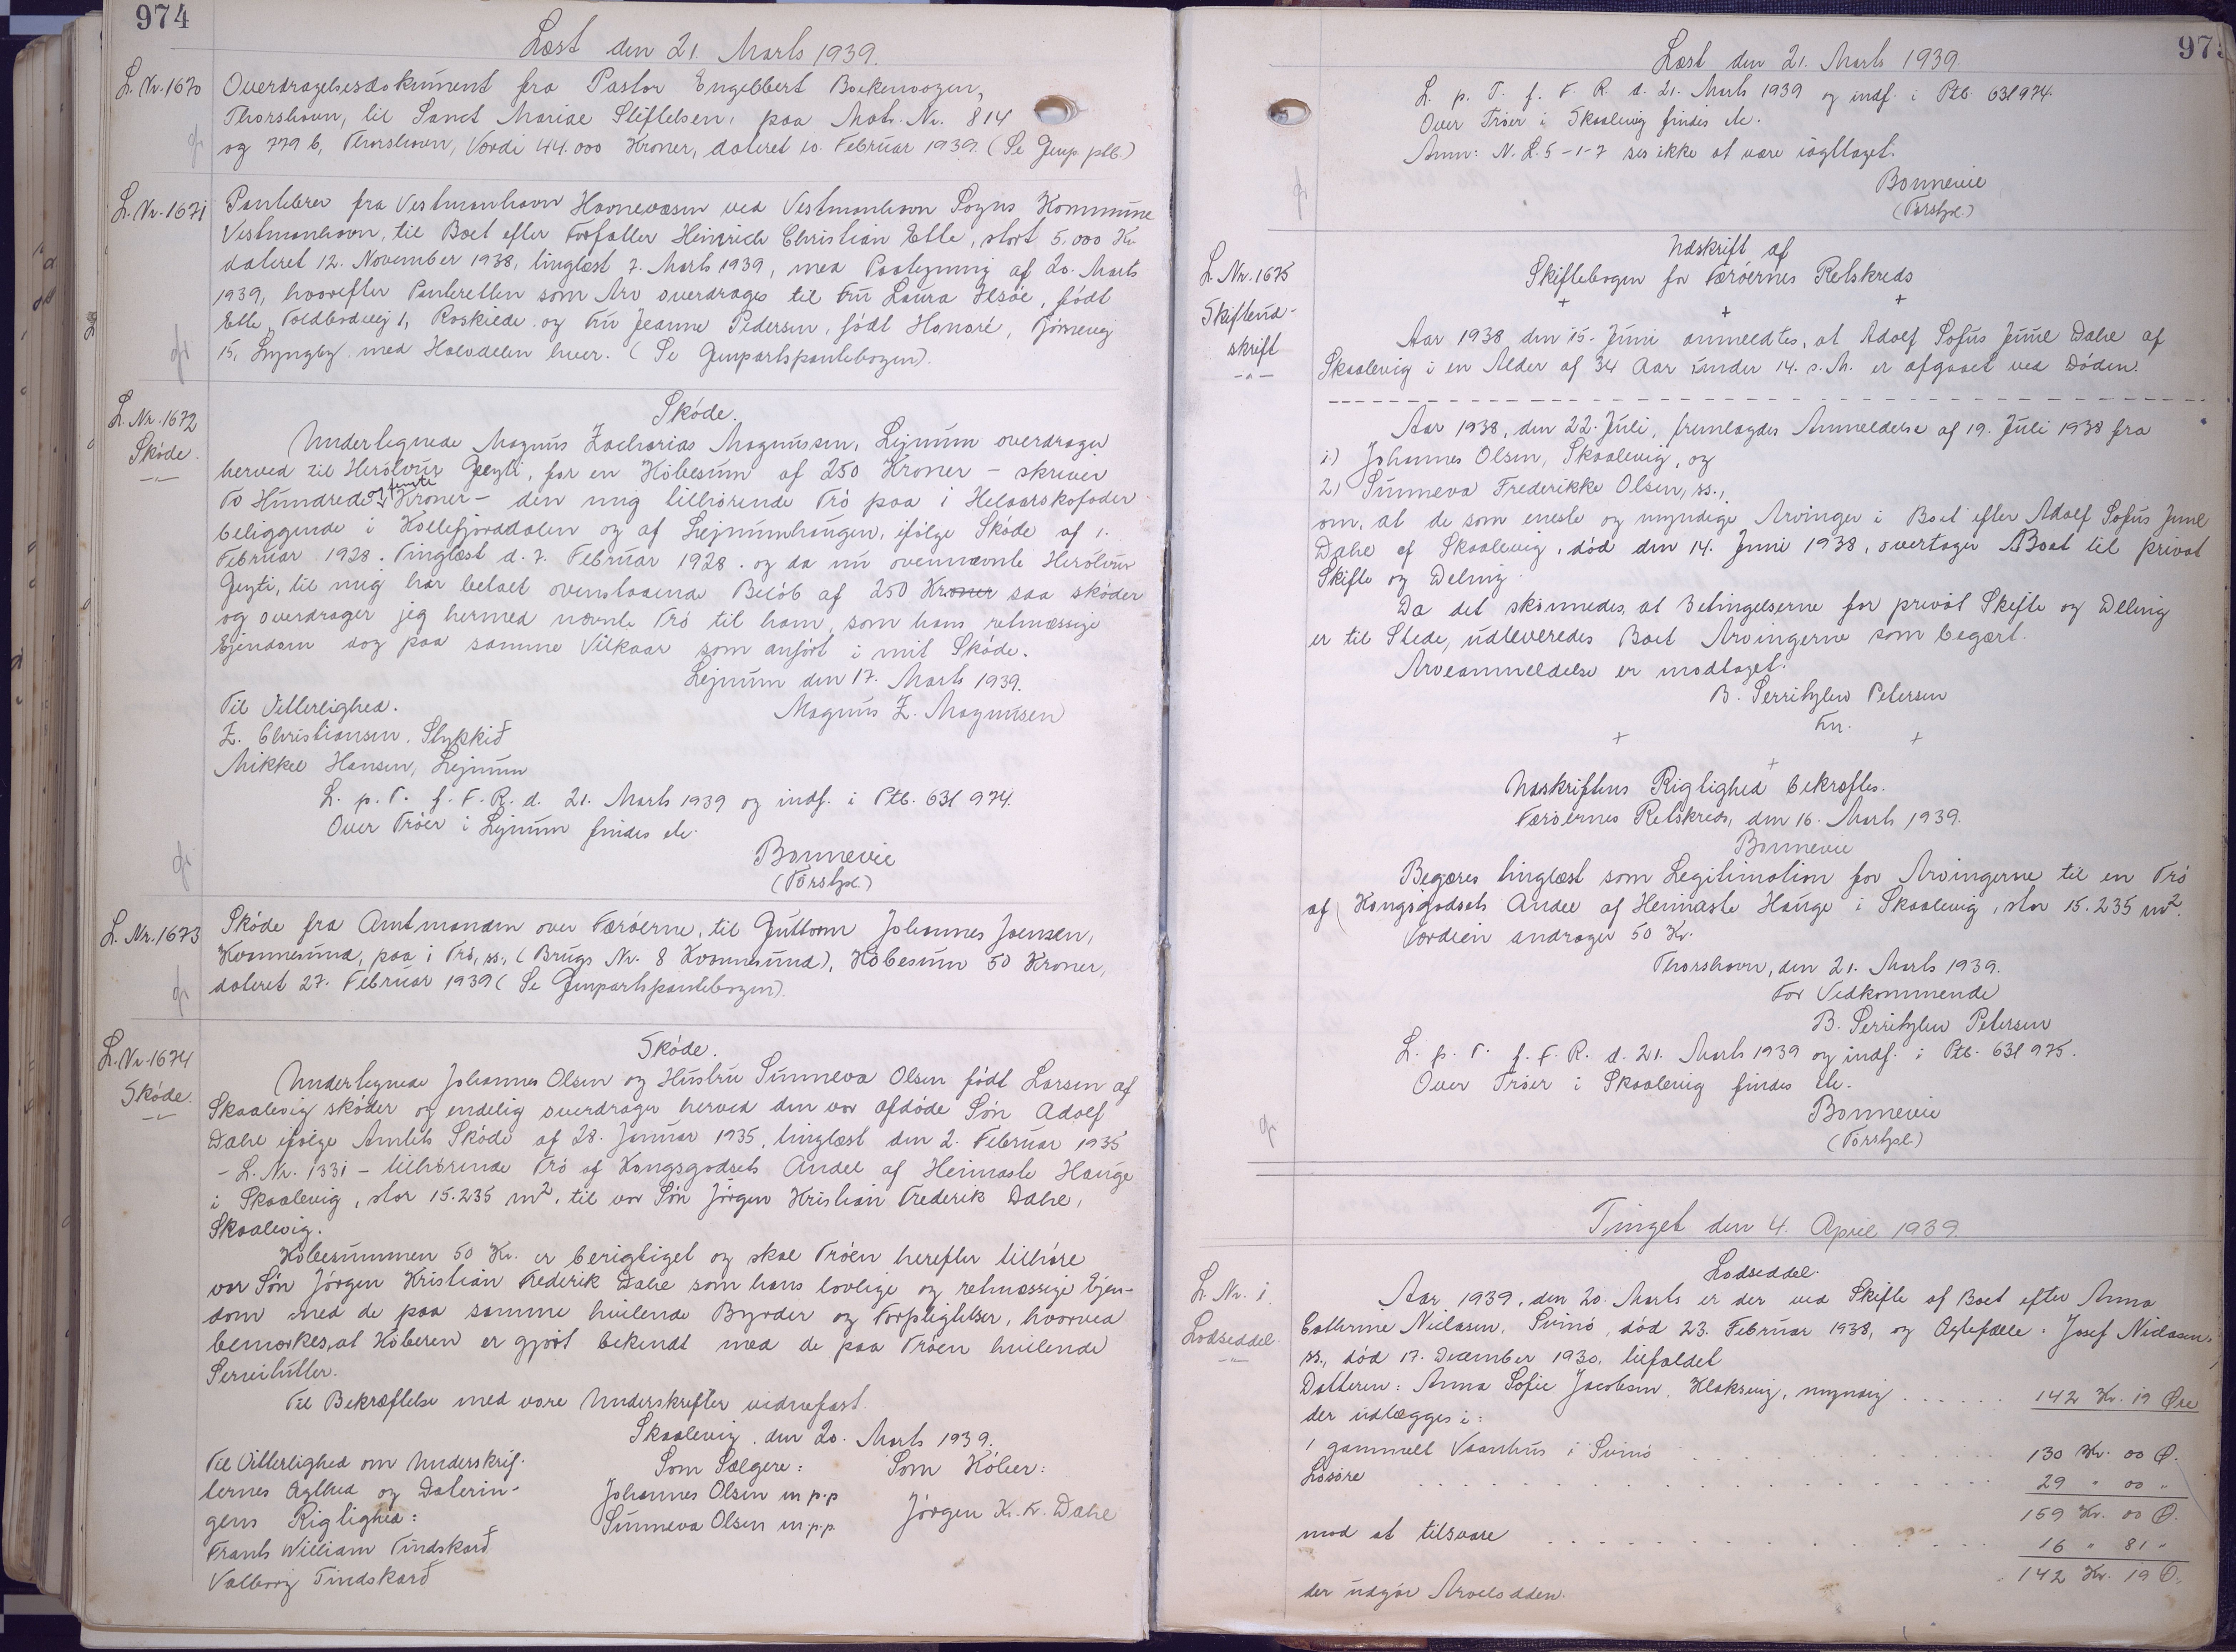 974
Læst den 21. Marts 1939.
L. Nr. 1670
Overdragelsesdokument fra Pastor Engelbert Boekenoogen,
Thorshavn, til Sanct Mariae Stiftelsen, paa Matr. Nr. 814
og 779 b, Thorshavn, Værdi 44.000 Kroner, dateret 10. Februar 1939. (Se Genp. ptb.)
L. Nr. 1671
Pantebrev fra Vestmanhavn Havnevæsen ved Vestmanhavn Sogns Kommune
Vestmanhavn, til Boet efter Forfatter Heinrich Christian Elle, stort 5.000 Kr.
dateret 12. November 1938, tinglæst 7. Marts 1939, med Paategning af 20. Marts
1939, hvorefter Panteretten som Arv overdrages til Fru Laura Ilsöe, født
Elle, Toldbodvej 1, Roskilde og Fru Jeanne Pedersen, født Honoré,
15, Lyngby med Halvdelen hver. (Se Genpartspantebogen).
L. Nr. 1672
Sköde.
Sköde.
Undertegnede Magnus Zacharias Magnussen, Lejnum overdrager
herved til Heròlvur Geyti, for en Köbesum af 250 Kroner - skriver
To Hundrede og femti Kroner - den mig tilhörende Trö paa 1 Helaarskofoder
beliggende i Kollefjorddalen og af Lejnumhaugen, ifölge Sköde af 1.
Februar 1928. Tinglæst d. 7. Februar 1928. og da nu ovennævnte Heròlvur
Geyti, til mig har betalt ovenstaaende Belöb af 250 Kroner saa sköder
og overdrager jeg hermed nævnte Trö til ham, som hans retmæssige
Ejendom dog paa samme Vilkaar som anfört i mit Sköde.
Lejnum den 17. Marts 1939.
Til Vitterlighed.
Magnus Z. Magnusen
Z. Christiansen, Stykkið
Mikkel Hansen, Lejnum
L. p. T. f. F. R. d. 21. Marts 1939 og indf. i Ptb. 63l 974.
Over Tröer i Lejnum findes etc.
Bonnevie
(Forstpl.)
L. Nr. 1673
Sköde fra Amtmanden over Færöerne, til Guttorm Johannes Joensen,
Kvannesund, paa 1 Trö, ss., (Brugs Nr. 8 Kvannesund), Köbesum 50 Kroner,
dateret 27. Februar 1939 (Se Genpartspantebogen).
L. Nr. 1674
Sköde.
Sköde.
Undertegnede Johannes Olsen og Hustru Sunneva Olsen født Larsen af
Skaalevig sköder og endelig overdrager herved den vor afdöde Sön Adolf
Dahl ifölge Amtets Sköde af 28. Januar 1935, tinglæst den 2. Februar 1935
- L. Nr. 1331 - tilhörende Trö af Kongsgodsets Andel af Heimaste Hauge
i Skaalevig, stor 15.235 m², til vor Sön Jörgen Kristian Frederik Dahl,
Skaalevig.
Köbesummen 50 Kr. er berigtiget og skal Tröen herefter tilhöre
vor Sön Jörgen Kristian Frederik Dahl som hans lovlige og retmæssige Ejen-
dom med de paa samme hvilende Byrder og Forpligtelser, hvorved
bemærkes, at Köberen er gjort bekendt med de paa Tröen hvilende
Servitutter.
Til Bekræftelse med vore Underskrifter vidnefast.
Skaalevig, den 20. Marts 1939.
Til Vitterlighed om Underskrif-
ternes Ægthed og Daterin-
gens Rigtighed:
Frants William Tindskarð
Valborg Tindskarð
Som Sælgere:
Johannes Olsen m p.p
Sunneva Olsen m p.p.
Som Köber:
Jörgen K. F. Dahl
975
Læst den 21. Marts 1939.
L. p. T. f. F. R. d. 21. Marts 1939 og indf. i Ptb. 63l 974.
Over Tröer i Skaalevig findes etc.
Anm: N. L. 5-1-7 ses ikke at være iagttaget.
Bonnevie
(Forstpl.)
L. Nr. 1675
Skifteud-
skrift
Udskrift af
Skiftebogen for Færöernes Retskreds
Aar 1938 den 15. Juni anmeldtes, at Adolf Sofus Juul Dahl af
Skaalevig i en Alder af 34 Aar under 14. s. M. er afgaaet ved Döden.
Aar 1938, den 22. Juli, fremlagdes Anmeldelse af 19. Juli 1938 fra
1) Johannes Olsen, Skaalevig, og
2) Sunneva Frederikke Olsen, ss.,
om, at de som eneste og myndige Arvinger i Boet efter Adolf Sofus Juul
Dahl af Skaalevig, död den 14. Juni 1938, overtager Boet til privat
Skifte og Deling.
Da det skönnedes, at Betingelserne for privat Skifte og Deling
er til Stede, udleveredes Boet Arvingerne som begært.
Arveanmeldelse er modtaget.
B. Serritzlew Petersen
Fm.
Udskriftens Rigtighed bekræftes.
Færöernes Retskreds, den 16. Marts 1939.
Bonnevie
Begæres tinglæst som Legitimation for Arvingerne til en Trö
af Kongsgodsets Andel af Heimaste Hauge i Skaalevig, stor 15.235 m².
Værdien andrager 50 Kr.
Thorshavn, den 21. Marts 1939.
For Vedkommende
B. Serritzlew Petersen
L. p. T. f. F. R. d. 21. Marts 1939 og indf. i Ptb. 63l 975.
Over Tröer i Skaalevig findes etc.
Bonnevie
(Forstpl.)
Tinget den 4. April 1939.
L. Nr. 1
Lodseddel
Lodseddel.
Aar 1939, den 20. Marts er der ved Skifte af Boet efter Anna
Cathrine Niclasen, Svinö, död 23. Februar 1938, og Ægtefælle Josef Niclasen,
ss., död 17. December 1930, tilfaldet
Datteren: Anna Sofie Jacobsen, Klaksvig, myndig ...... 142 Kr. 19 Øre
der udlægges i:
1 gammelt Vaanhus i Svinö ...... 130 Kr. 00 Ø.
Lösöre ...... 29 " 00 "
159 Kr. 00 Ø.
mod at tilsvare ...... 16 " 81 "
142 Kr. 19 Ø.
der udgör Arvelodden.